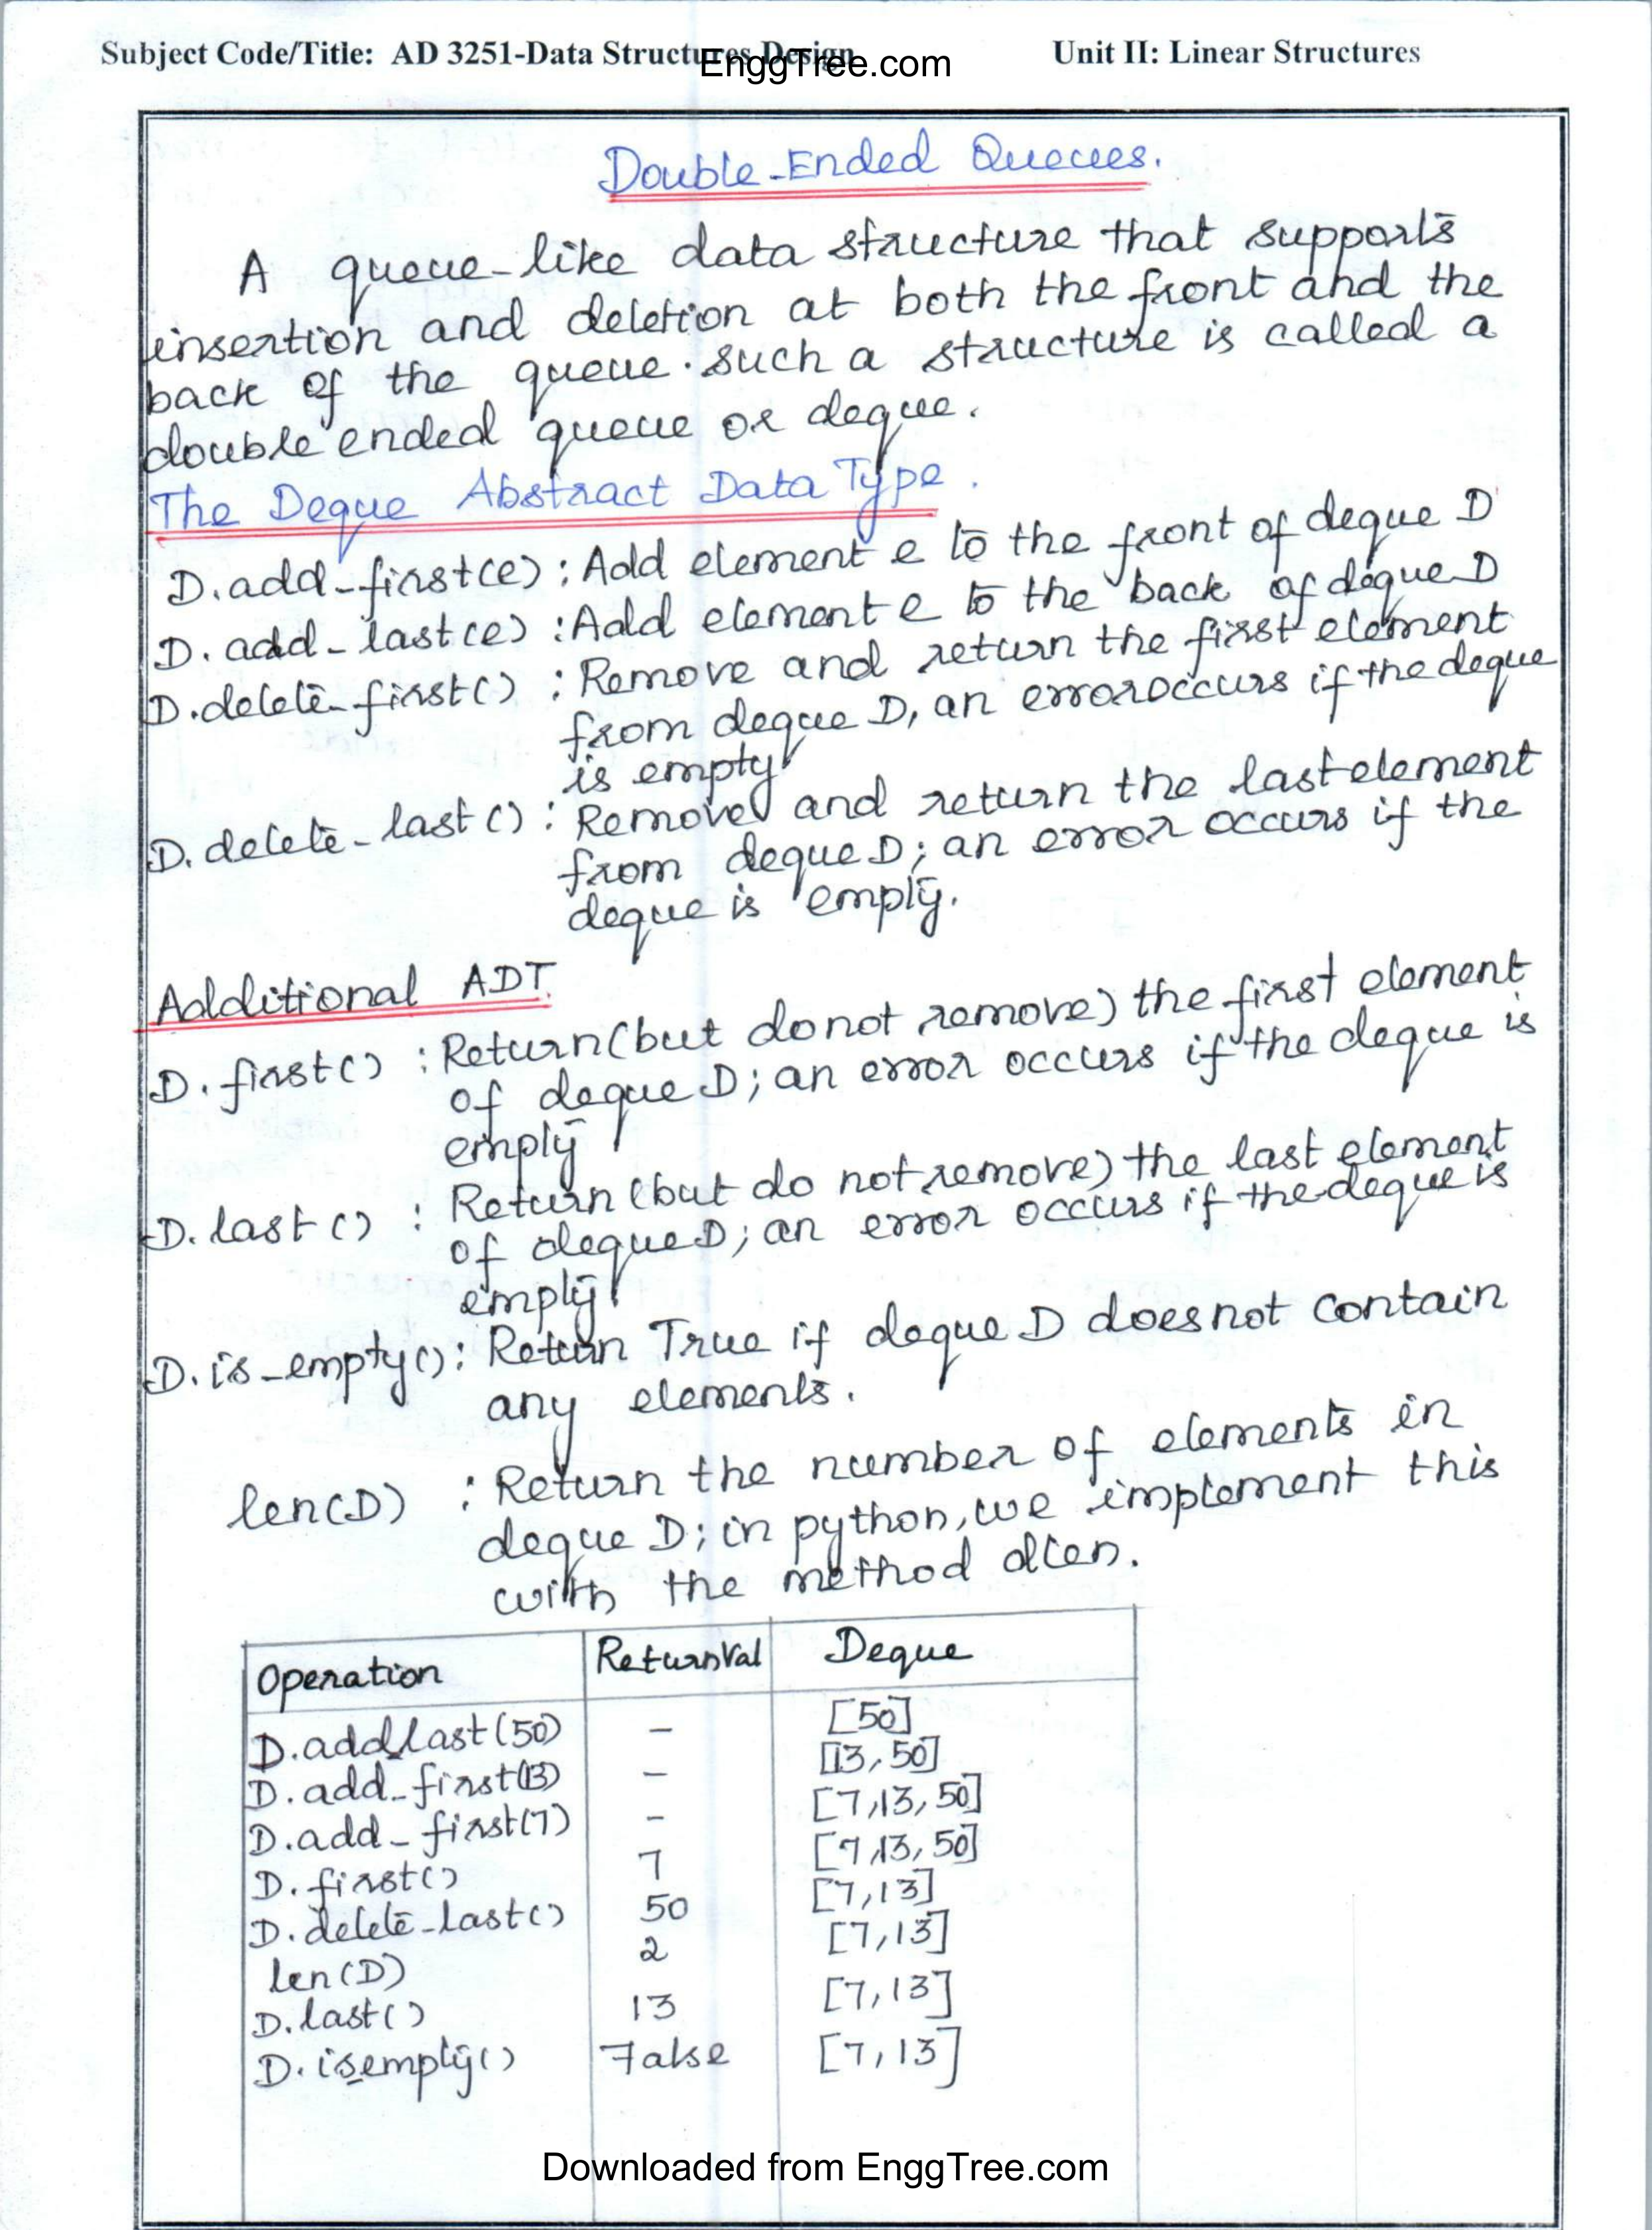 Subject Code/Title: AD 3251-Data Structures Design
EnggTree.com
Unit II: Linear Structures
Double-Ended Queues.
A queue-like data structure that supports
insertion and deletion at both the front and the
back of the queue. such a structure is called a
double ended queue or deque.
The Deque Abstract Data Type.
D.add_first(e) : Add element e to the front of deque D
D.add_last(e) : Add element e to the back of deque D
D.delete_first() : Remove and return the first element
from deque D, an error occurs if the deque
is empty
D.delete_last() : Remove and return the last element
from deque D; an error occurs if the
deque is empty.
Additional ADT.
D.first() : Return (but do not remove) the first element
of deque D; an error occurs if the deque is
empty
D.last() : Return (but do not remove) the last element
of deque D; an error occurs if the deque is
empty
D.is_empty() : Return True if deque D does not contain
any elements.
len(D) : Return the number of elements in
deque D; in python, we implement this
with the method dlen.
Operation ReturnVal Deque
D.add_last(50) - [50]
D.add_first(13) - [13,50]
D.add_first(7) - [7,13,50]
D.first() 7 [7,13,50]
D.delete_last() 50 [7,13]
len(D) 2 [7,13]
D.last() 13 [7,13]
D.is_empty() False [7,13]
Downloaded from EnggTree.com